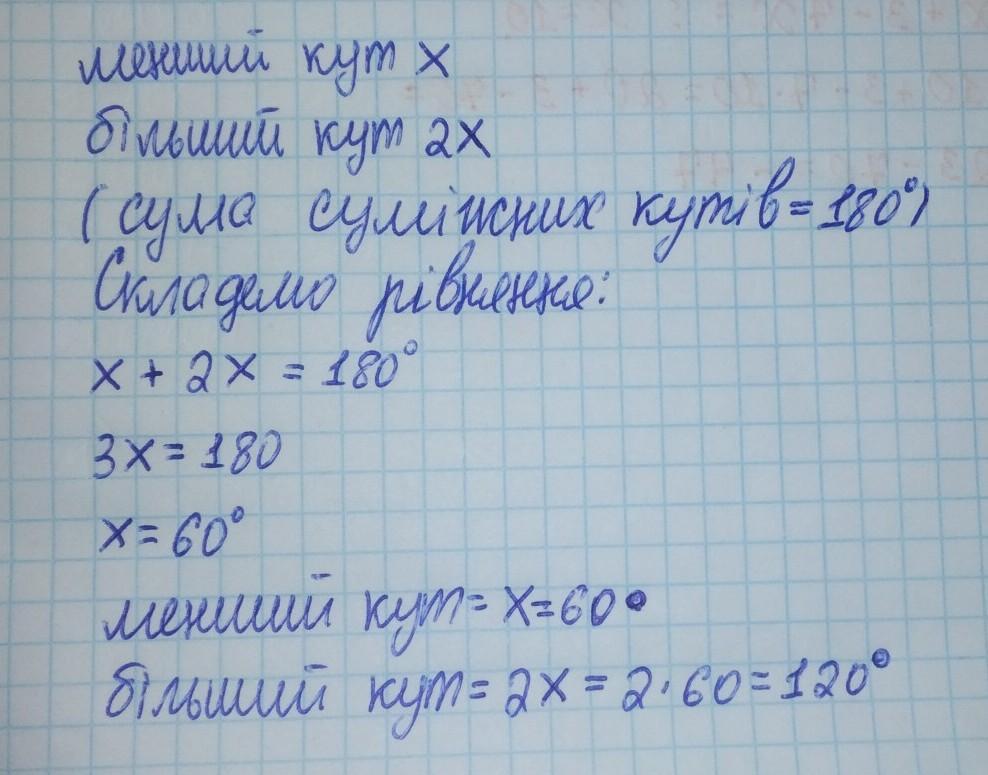 менший кут x
більший кут 2x
(сума суміжних кутів = 180°)
Складемо рівняння:
x + 2x = 180°
3x = 180
x = 60°
менший кут = x = 60°
більший кут = 2x = 2·60 = 120°